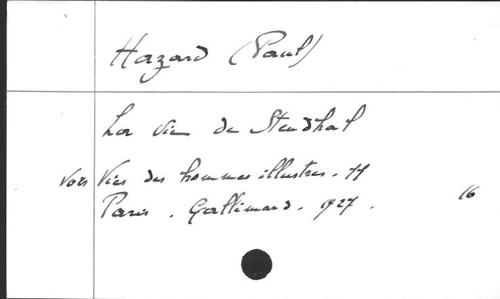 Hazard (Paul)
La vie de Stendhal
Voir Vies des hommes illustres. 11
Paris. Gallimard. 1927. 16